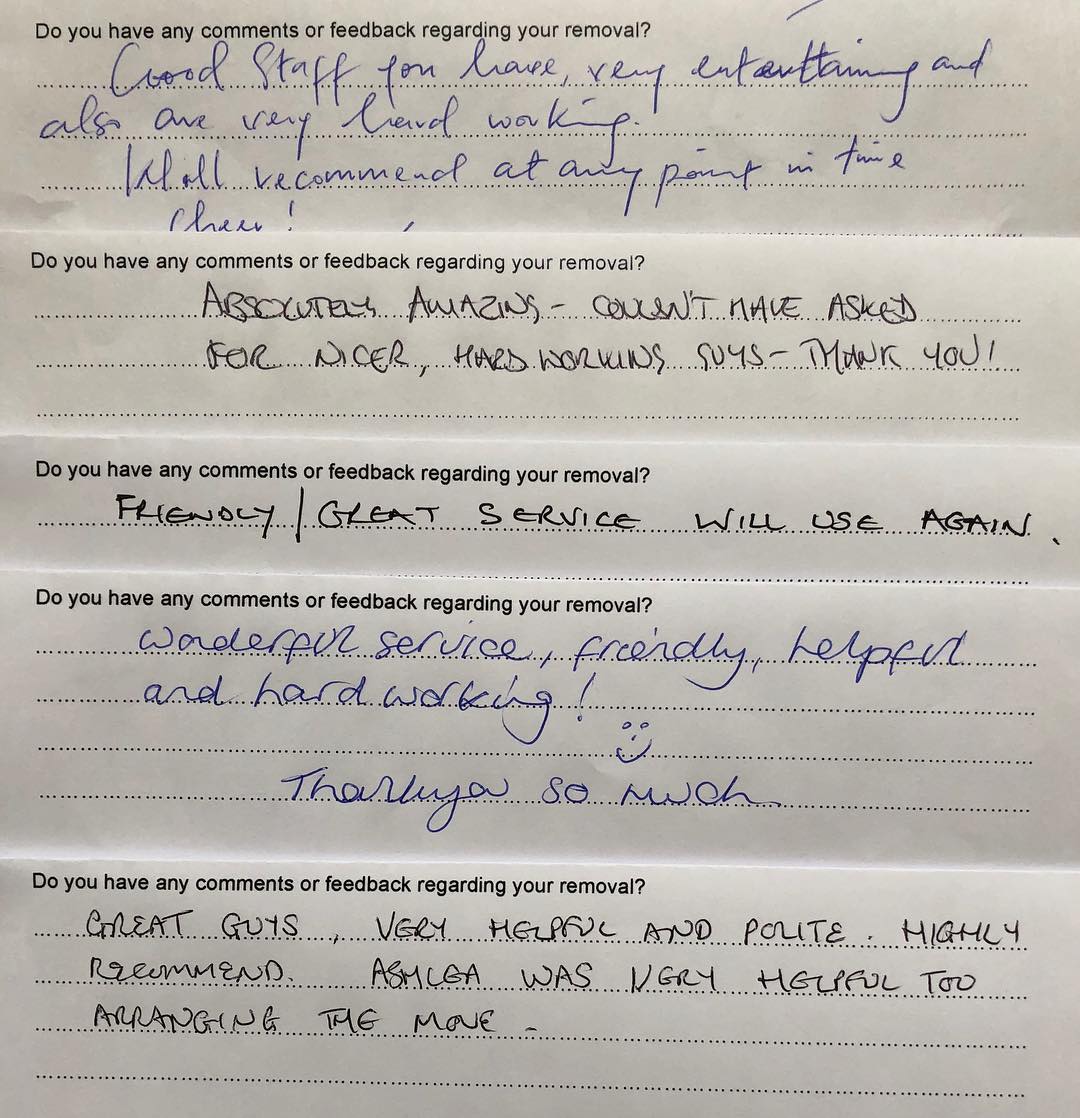 Do you have any comments or feedback regarding your removal?
Good Staff you have, very entertaining and
also are very hard working.
Will recommend at any point in time
Cheers!
Do you have any comments or feedback regarding your removal?
ABSOLUTELY AMAZING - COULDN'T HAVE ASKED
FOR NICER, HARD WORKING GUYS - THANK YOU!
Do you have any comments or feedback regarding your removal?
FRIENDLY / GREAT SERVICE WILL USE AGAIN.
Do you have any comments or feedback regarding your removal?
wonderful service, friendly, helpful
and hard working!
Thankyou so much
Do you have any comments or feedback regarding your removal?
GREAT GUYS, VERY HELPFUL AND POLITE. HIGHLY
RECOMMEND. ASHLEA WAS VERY HELPFUL TOO
ARRANGING THE MOVE -